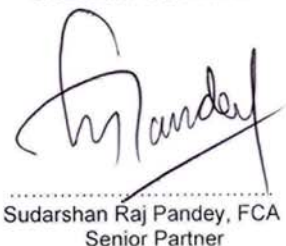 Pandey
.......................................
Sudarshan Raj Pandey, FCA
Senior Partner